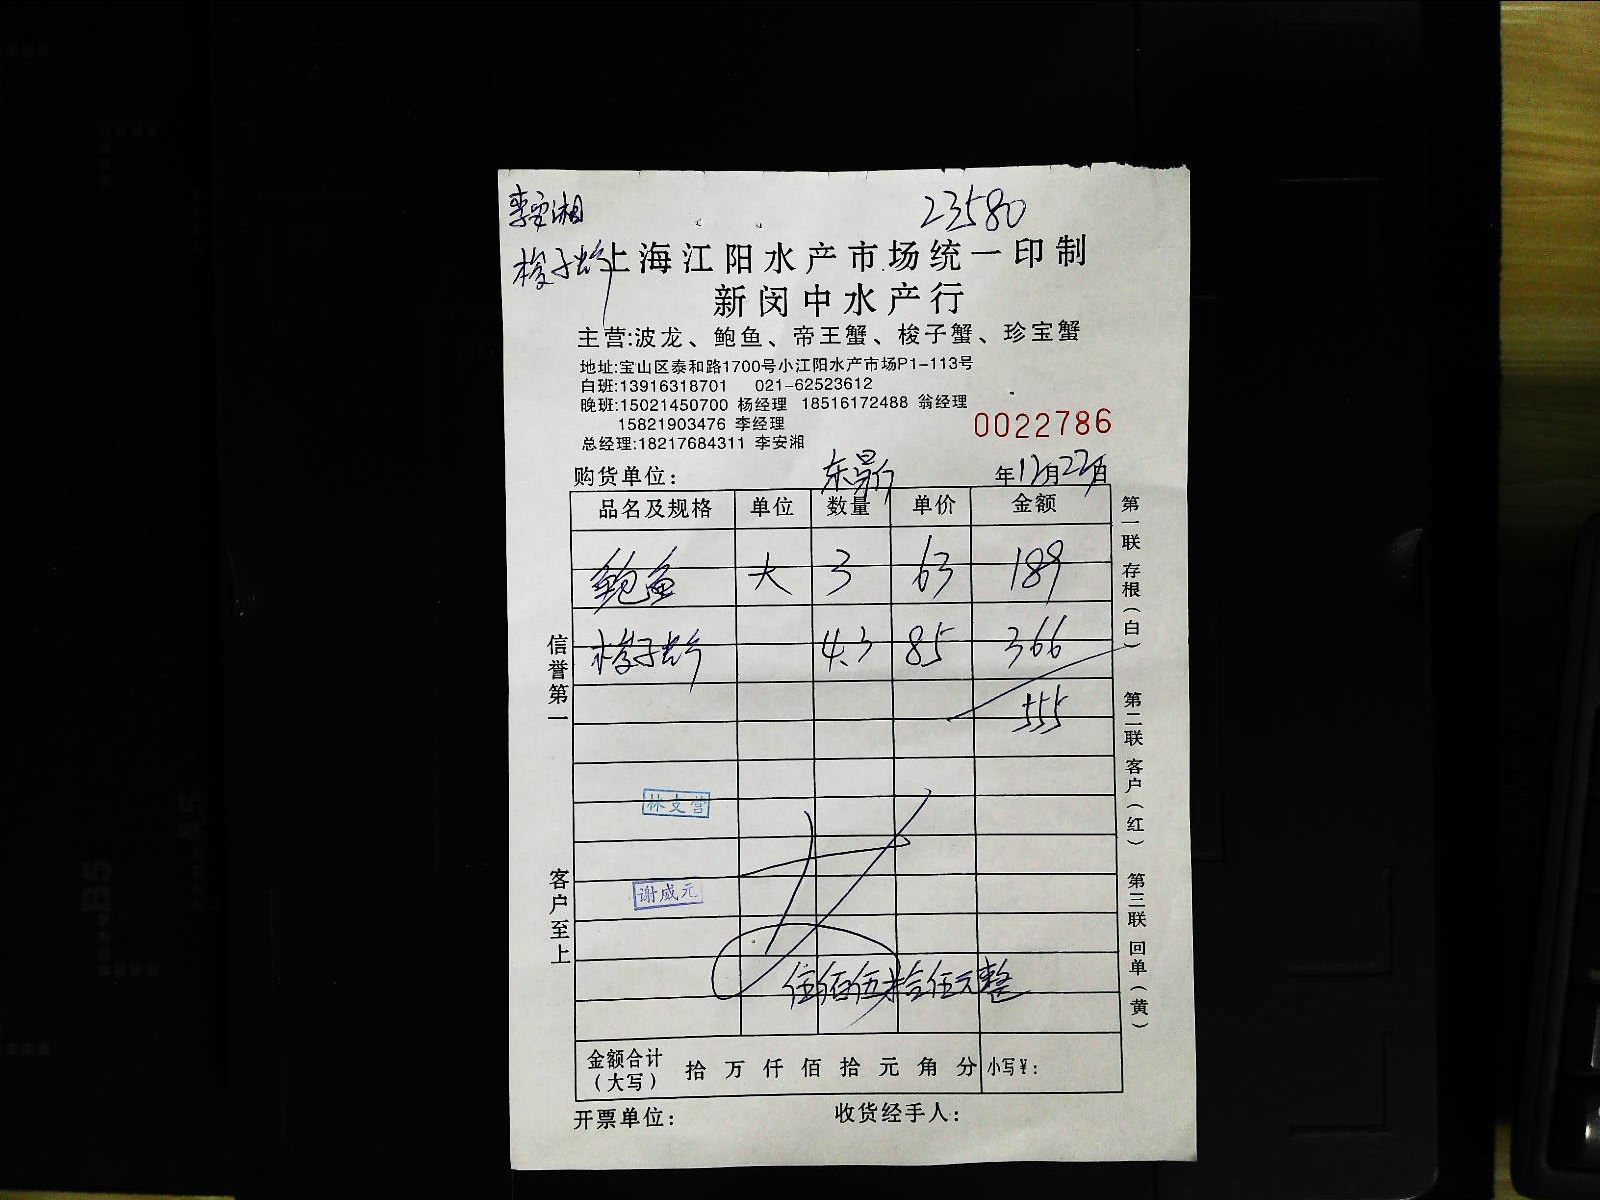 李安湘
23580
梭子蟹
上海江阳水产市场统一印制
新闵中水产行
主营:波龙、鲍鱼、帝王蟹、梭子蟹、珍宝蟹
地址:宝山区泰和路1700号小江阳水产市场P1-113号
白班:13916318701 021-62523612
晚班:15021450700 杨经理 18516172488 翁经理
15821903476 李经理
0022786
总经理:18217684311 李安湘
购货单位: 年12月22日
品名及规格 单位 数量 单价 金额
鲍鱼 大 3 63 189
梭子蟹 4.3 85 366
555
林支营
谢威元
伍佰伍拾伍元整
金额合计(大写) 拾 万 仟 佰 拾 元 角 分 小写¥:
开票单位: 收货经手人:
信誉第一
客户至上
第一联 存根(白)
第二联 客户(红)
第三联 回单(黄)